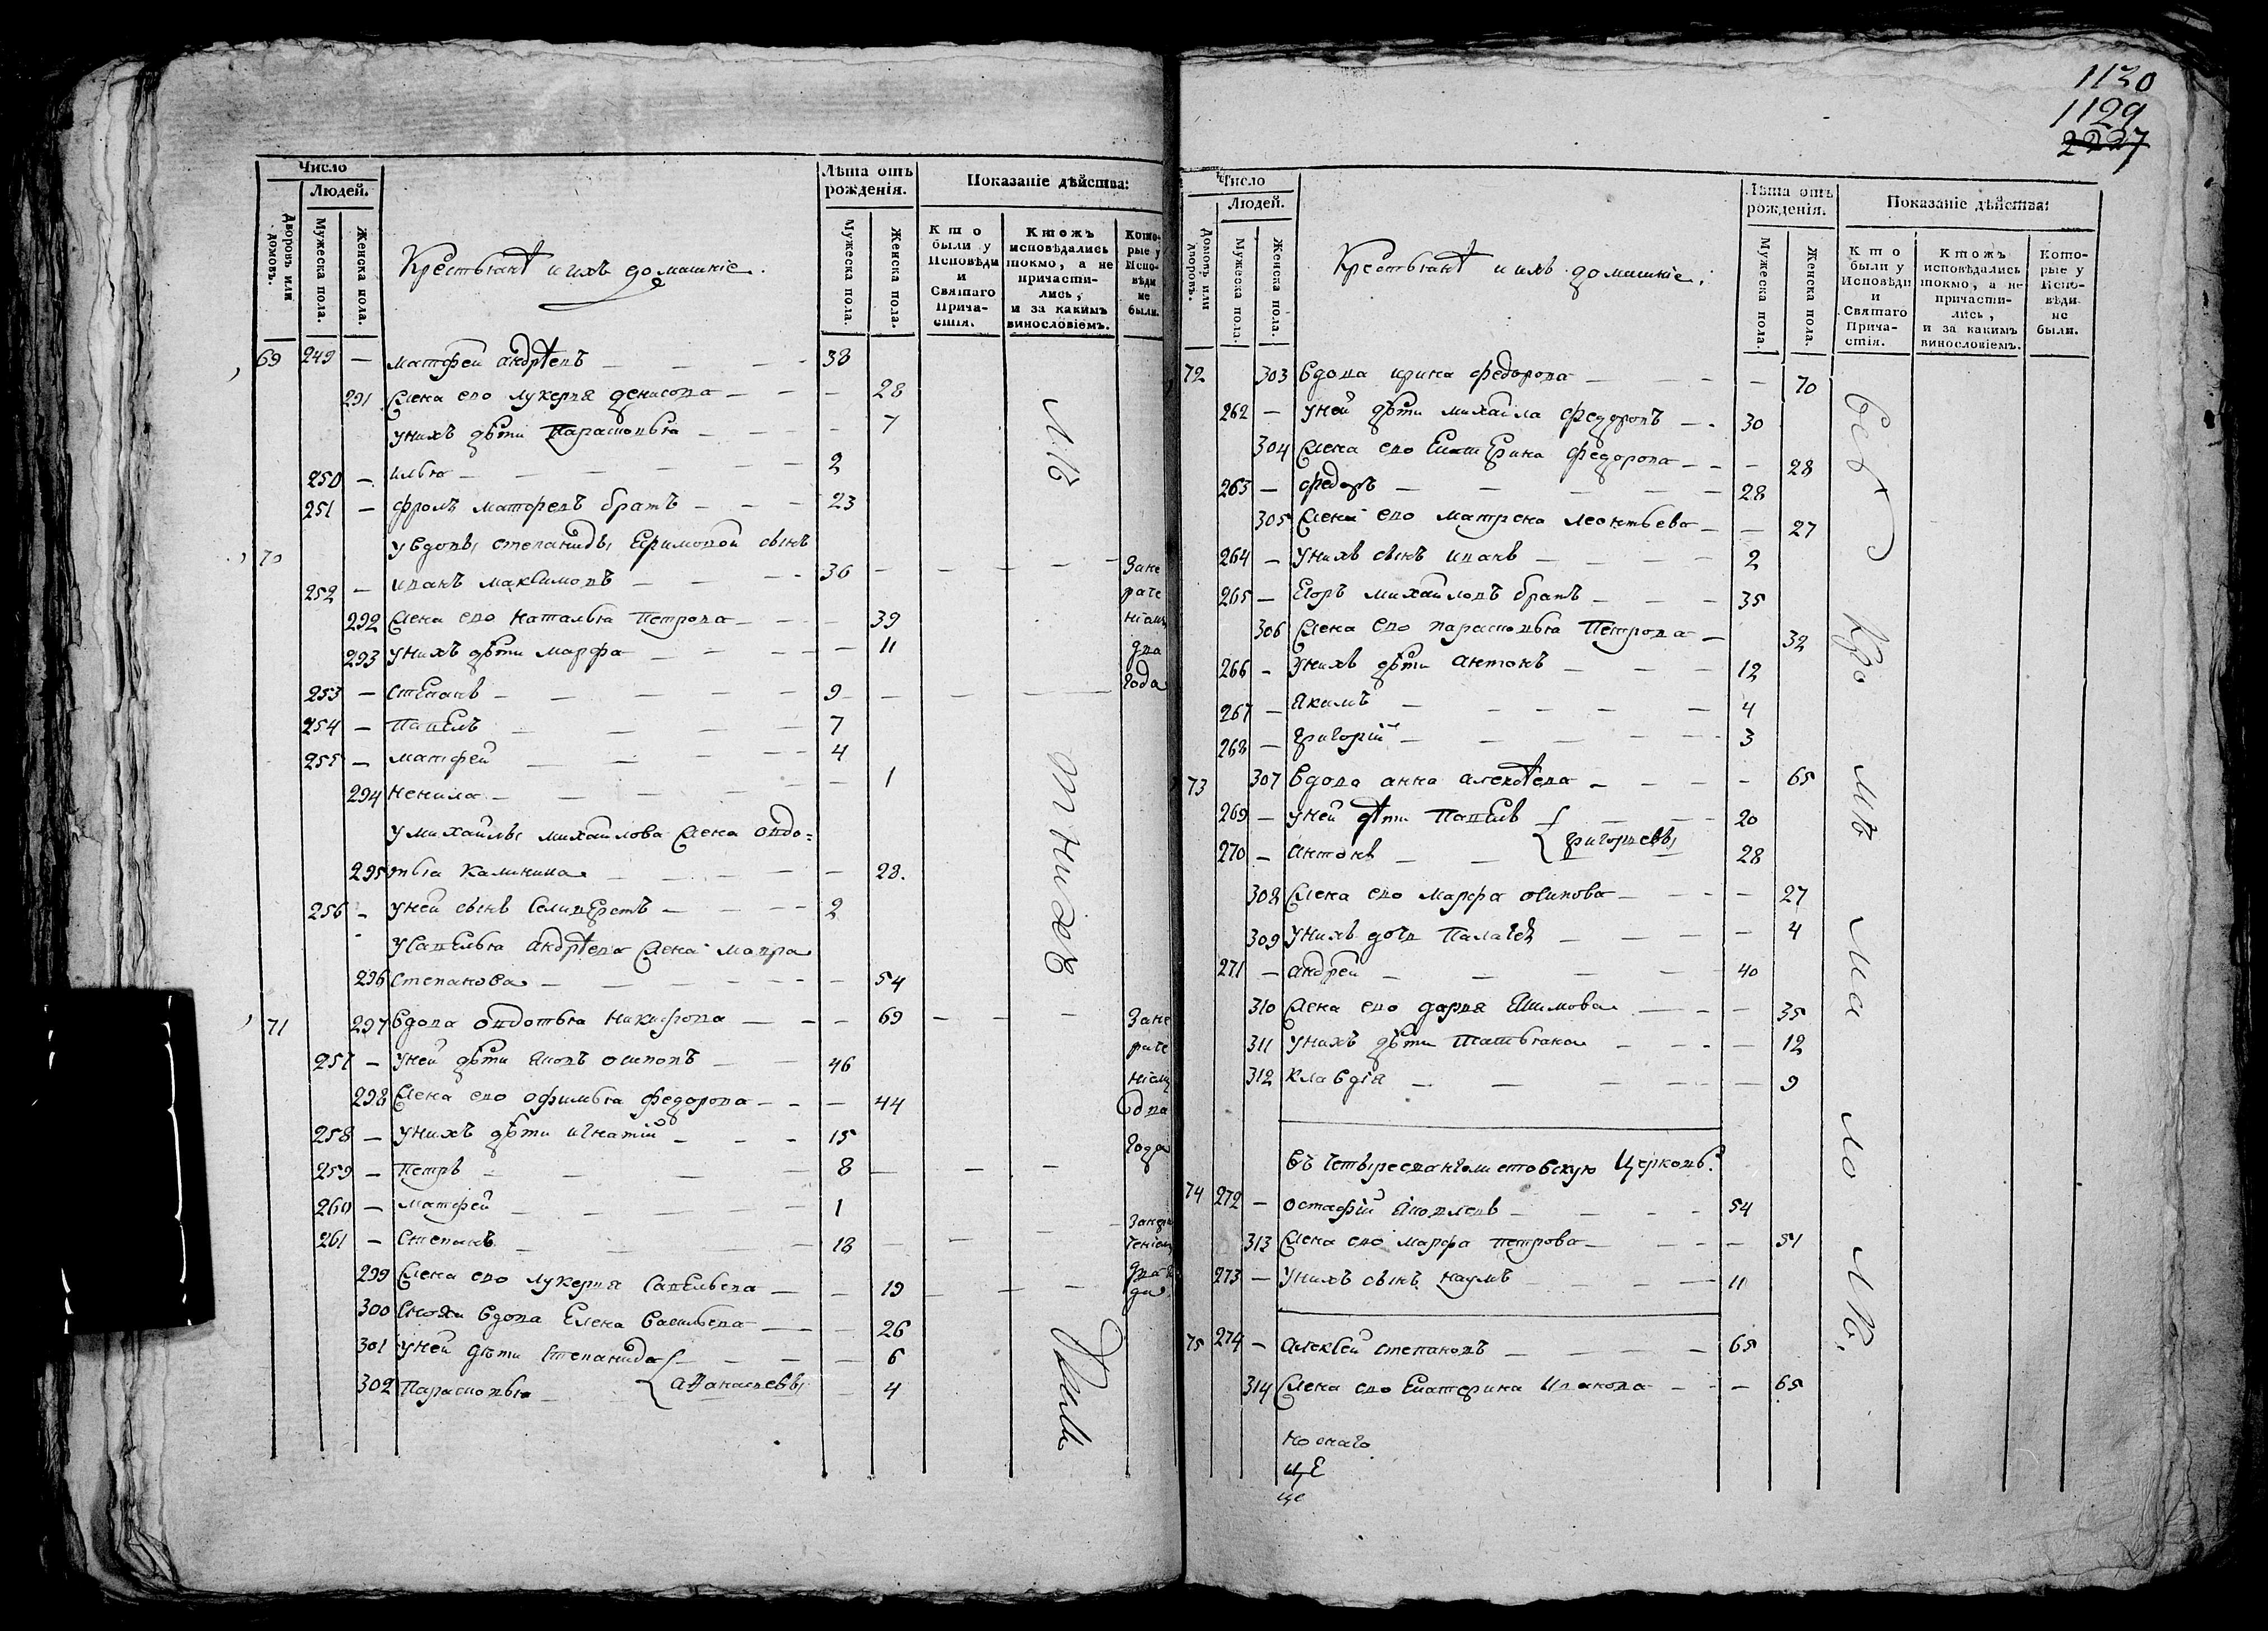 1130
1129
2227
Число
Людей.
Дворовъ или домовъ.
Мужеска пола.
Женска пола.
Крестьянѣ и ихъ домашніе.
Лѣта отъ рожденія.
Мужеска пола.
Женска пола.
Показаніе дѣйства:
Кто были у Исповѣди и Святаго Причастія.
Ктожъ исповѣдались токмо, а не причастились, и за какимъ винословіемъ.
Которые у Исповѣди не были.
69 249 — матфей андрѣевъ — 38
291 жена ево лукерья денисова — 28
у нихъ дѣти Парасковья — 7
250 — илья — 2
251 — фролъ матфеевъ братъ — 23
70 у вдовы степаниды Ефимовой сынъ
252 — иванъ максимовъ — 36
292 жена ево наталья Петрова — 39
293 у нихъ дѣти марфа — 11
253 — степанъ — 9
254 — Павелъ — 7
255 — матфей — 4
294 ненила — 1
у михайлы михайлова жена овдо=
295 тья калинина — 28.
256 — у ней сынъ Селиверстъ — 2
у Савелья андрѣева жена мавра
296 степанова — 54
71 297 вдова овдотья никифорова — 69
257 — у ней дѣти яковъ осиповъ — 46
298 жена ево офимья федорова — 44
258 — у нихъ дѣти игнатій — 15
259 — петръ — 8
260 — матфей — 1
261 — степанъ — 18
299 жена ево лукерья савельева — 19
300 сноха вдова Елена васильева — 26
301 у ней дѣти степанида — 6
302 Парасковья — афанасьевы — 4
Зане
раче
ніемъ
два
года
Зане
раче
ніемъ
два
года
Число
Людей.
Домовъ или дворовъ.
Мужеска пола.
Женска пола.
Крестьянѣ и ихъ домашніе.
Лѣта отъ рожденія.
Мужеска пола.
Женска пола.
Показаніе дѣйства:
Кто были у Исповѣди и Святаго Причастія.
Ктожъ исповѣдались токмо, а не причастились, и за какимъ винословіемъ.
Которые у Исповѣди не были.
72 303 вдова ирина федорова — 70
262 — у ней дѣти михайла федоровъ — 30
304 жена ево Екатерина федорова — 28
263 — федоръ — 28
305 жена ево матрена леонтьева — 27
264 — у нихъ сынъ иванъ — 2
265 — Егоръ михайловъ братъ — 35
306 жена ево парасковья Петрова — 32
266 — у нихъ дѣти антонъ — 12
267 — якимъ — 4
268 — григорій — 3
73 307 вдова анна алексѣева — 65
269 — у ней дѣти Павелъ — 20
270 — антонъ — григорьевы — 28
308 жена ево марфа осипова — 27
309 у нихъ дочь Палагея — 4
271 — андрей — 40
310 жена ево дарья Якимова — 35
311 у нихъ дѣти татьяна — 12
312 клавдія — 9
въ четыреевангелистовскую Церковь.
74 272 — остафій яковлевъ — 54
313 жена ево марфа петрова — 51
273 — у нихъ сынъ наумъ — 11
75 274 — алексей степановъ — 65
314 жена ево Екатерина иванова — 65
носкаго
це
це